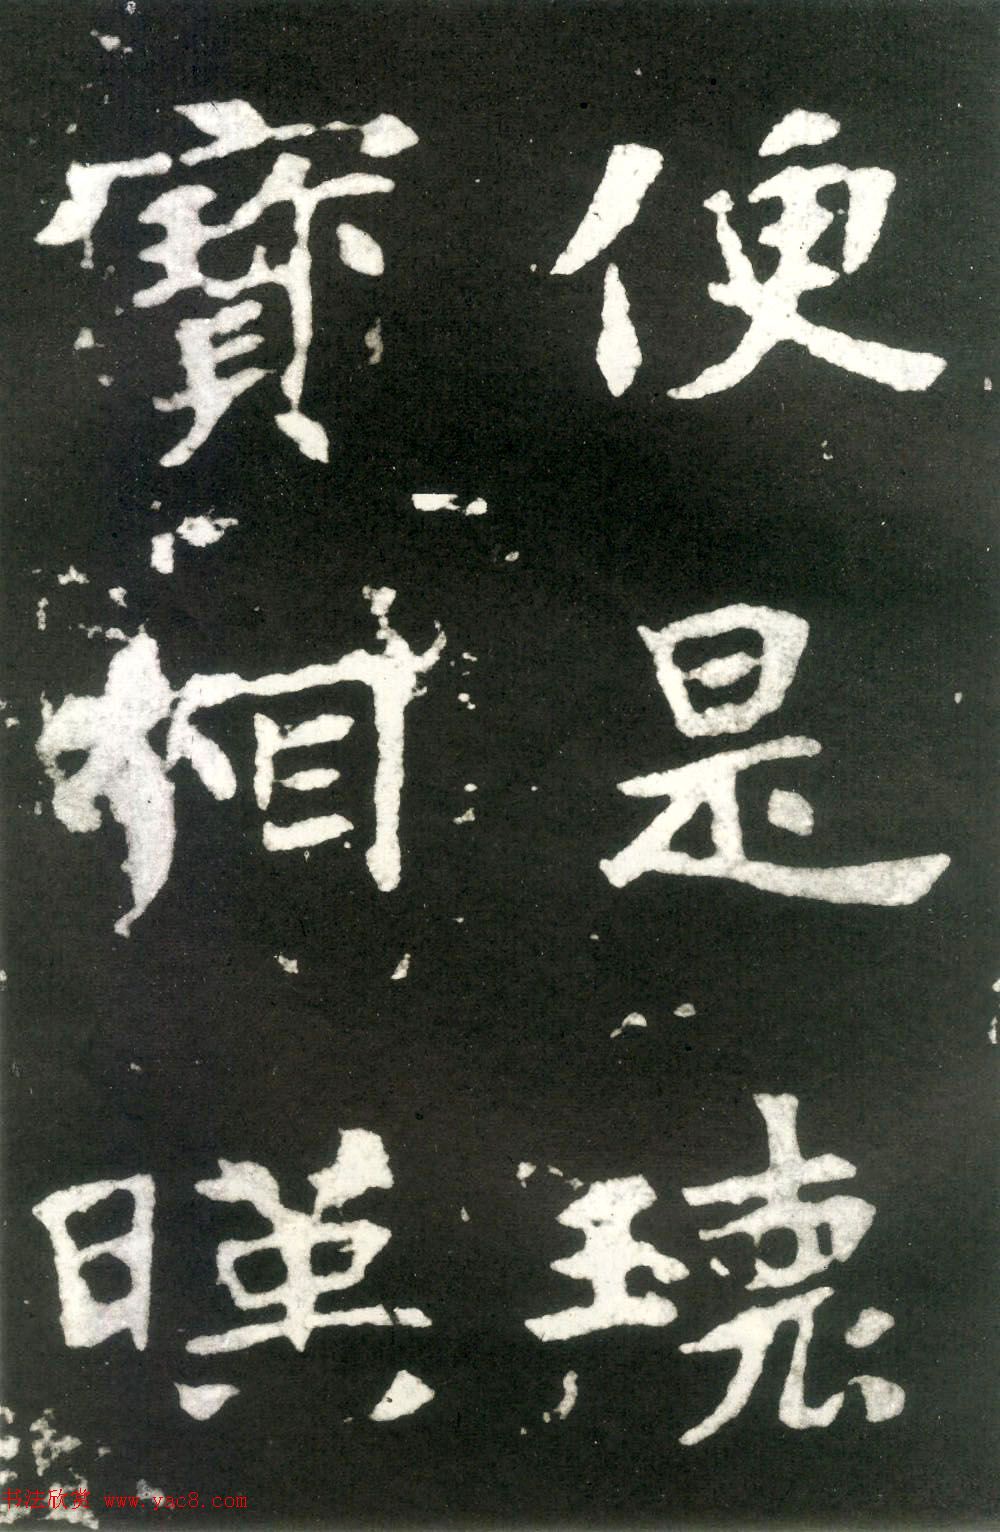 便是瓌
寶相暉
书法欣赏 www.yac8.com